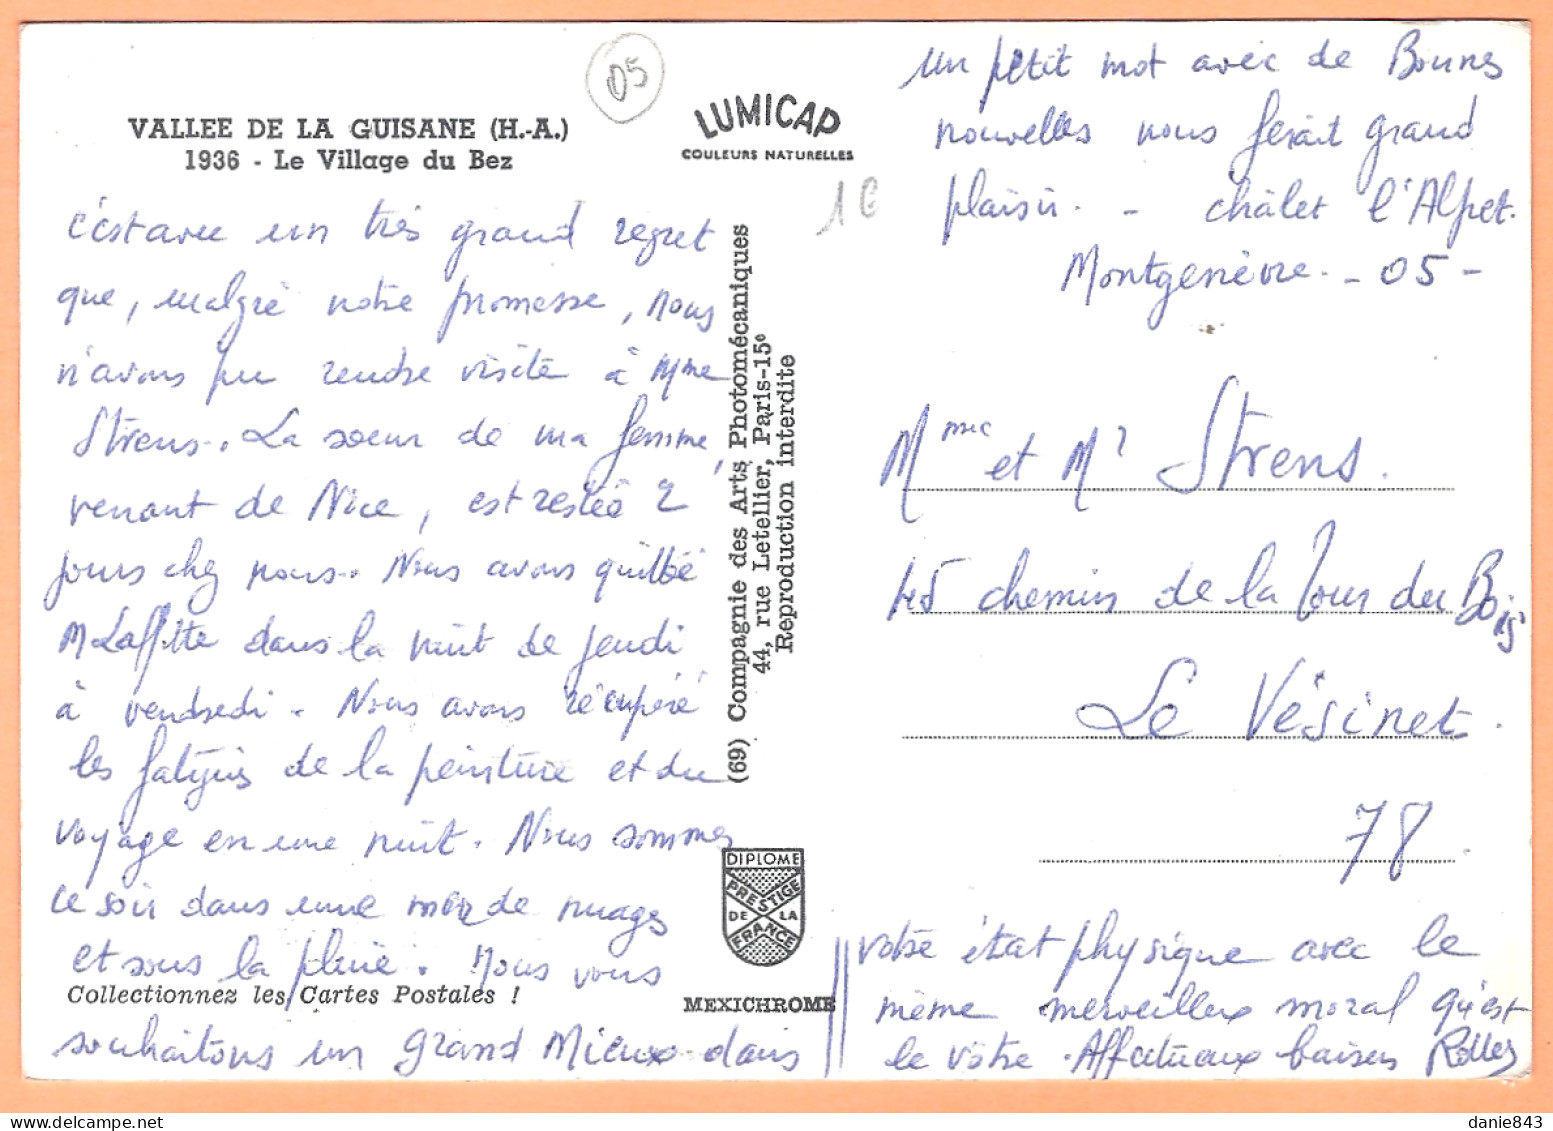 05
VALLEE DE LA GUISANE (H.-A.)
1936 - Le Village du Bez
LUMICAP
COULEURS NATURELLES
1 €
c'est avec un très grand regret
que, malgré notre promesse, nous
n'avons pu rendre visite à Mme
Strens. La soeur de ma femme,
venant de Nice, est restée 2
jours chez nous. Nous avons quitté
M Laffitte dans la nuit de jeudi
à vendredi. Nous avons récupéré
les fatigues de la peinture et du
voyage en une nuit. Nous sommes
ce soir dans une mer de nuages
et sous la pluie. Nous vous
Collectionnez les Cartes Postales !
souhaitons un grand Mieux dans
(69) Compagnie des Arts Photomécaniques
44, rue Letellier, Paris-15e
Reproduction interdite
DIPLOME
PRESTIGE
DE LA
FRANCE
MEXICHROME
votre état physique avec le
même merveilleux moral qu'est
le vôtre. Affectueux baisers
un petit mot avec de Bonnes
nouvelles nous ferait grand
plaisir. - châlet l'Alpet.
Montgenèvre. - 05 -
Mme et Mr Strens.
45 chemin de la Tour du Bois
Le Vésinet.
78
danie843